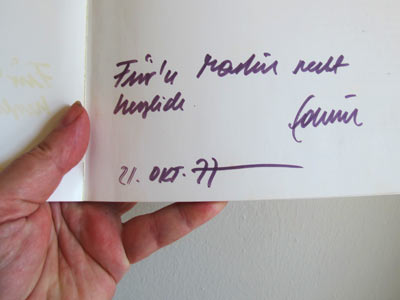 Für'n Martin recht
herzlich
21. OKT. 77